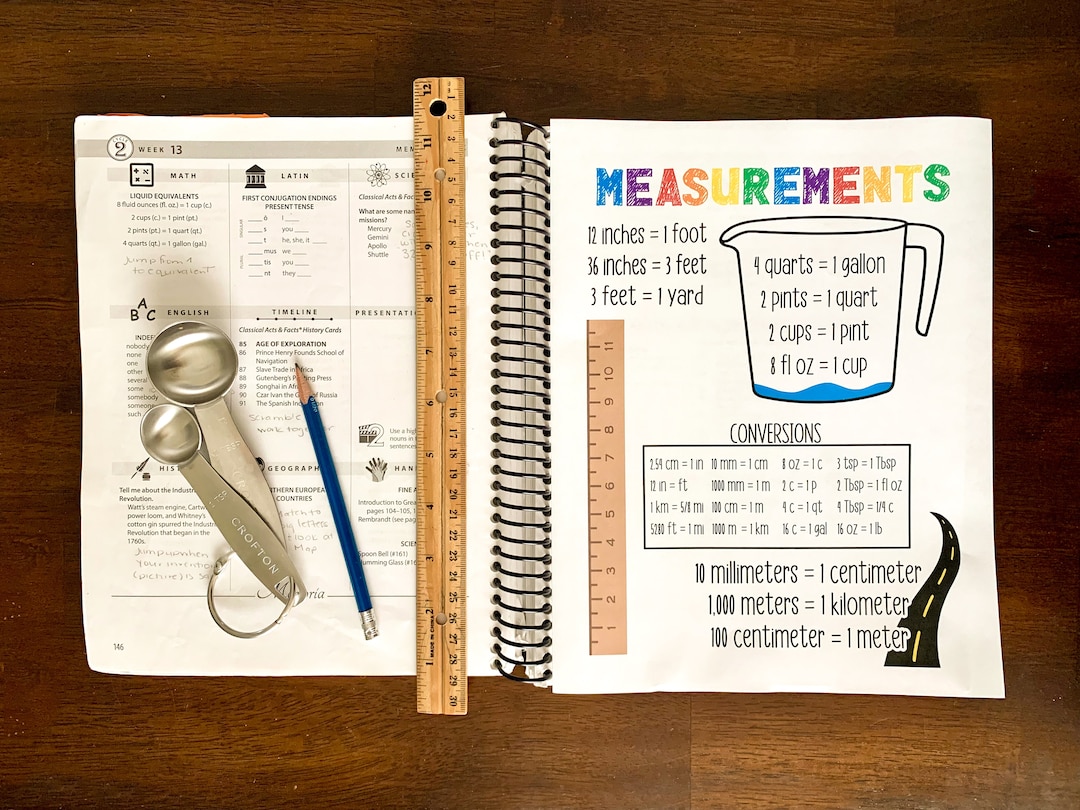 2 WEEK 13
MATH
LIQUID EQUIVALENTS
8 fluid ounces (fl. oz.) = 1 cup (c.)
2 cups (c.) = 1 pint (pt.)
2 pints (pt.) = 1 quart (qt.)
4 quarts (qt.) = 1 gallon (gal.)
jump from 1
to equivalent
LATIN
FIRST CONJUGATION ENDINGS
PRESENT TENSE
SINGULAR
PLURAL
ō I
s you
t he, she, it
mus we
tis you
nt they
Classical Acts & Facts
What are some
missions?
Mercury
Gemini
Apollo
Shuttle
A
B C
ENGLISH
nobody
none
one
other
several
some
somebody
someone
such
TIMELINE
Classical Acts & Facts® History Cards
85 AGE OF EXPLORATION
86 Prince Henry Founds School of
Navigation
87 Slave Trade in
88 Gutenberg's Press
89 Songhai in
90 Czar Ivan the of Russia
91 The Spanish
scramble
walk together
Use a
nouns in
sentences
Tell me about the
Revolution.
Watt's steam engine,
power loom, and Whitney's
cotton gin spurred the
Revolution that began in the
1760s.
Jump up when
your invention
(picture) is
EUROPEAN
COUNTRIES
letters
look at
Map
FINE
Introduction to
pages 104–105,
Rembrandt (see
Spoon Bell (#161)
Glass
146
CROFTON
12 11 10 9 8 7 6 5 4 3 2 1
MADE IN CHINA
1 2 3 4 5 6 7 8 9 10 11 12 13 14 15 16 17 18 19 20 21 22 23 24 25 26 27 28 29 30
MEASUREMENTS
12 inches = 1 foot
36 inches = 3 feet
3 feet = 1 yard
4 quarts = 1 gallon
2 pints = 1 quart
2 cups = 1 pint
8 fl oz = 1 cup
11
10
9
8
7
6
5
4
3
2
1
CONVERSIONS
2.54 cm = 1 in 10 mm = 1 cm 8 oz = 1 c 3 tsp = 1 Tbsp
12 in = ft 1000 mm = 1 m 2 c = 1 p 2 Tbsp = 1 fl oz
1 km = 5/8 mi 100 cm = 1 m 4 c = 1 qt 4 Tbsp = 1/4 c
5280 ft = 1 mi 1000 m = 1 km 16 c = 1 gal 16 oz = 1 lb
10 millimeters = 1 centimeter
1,000 meters = 1 kilometer
100 centimeter = 1 meter